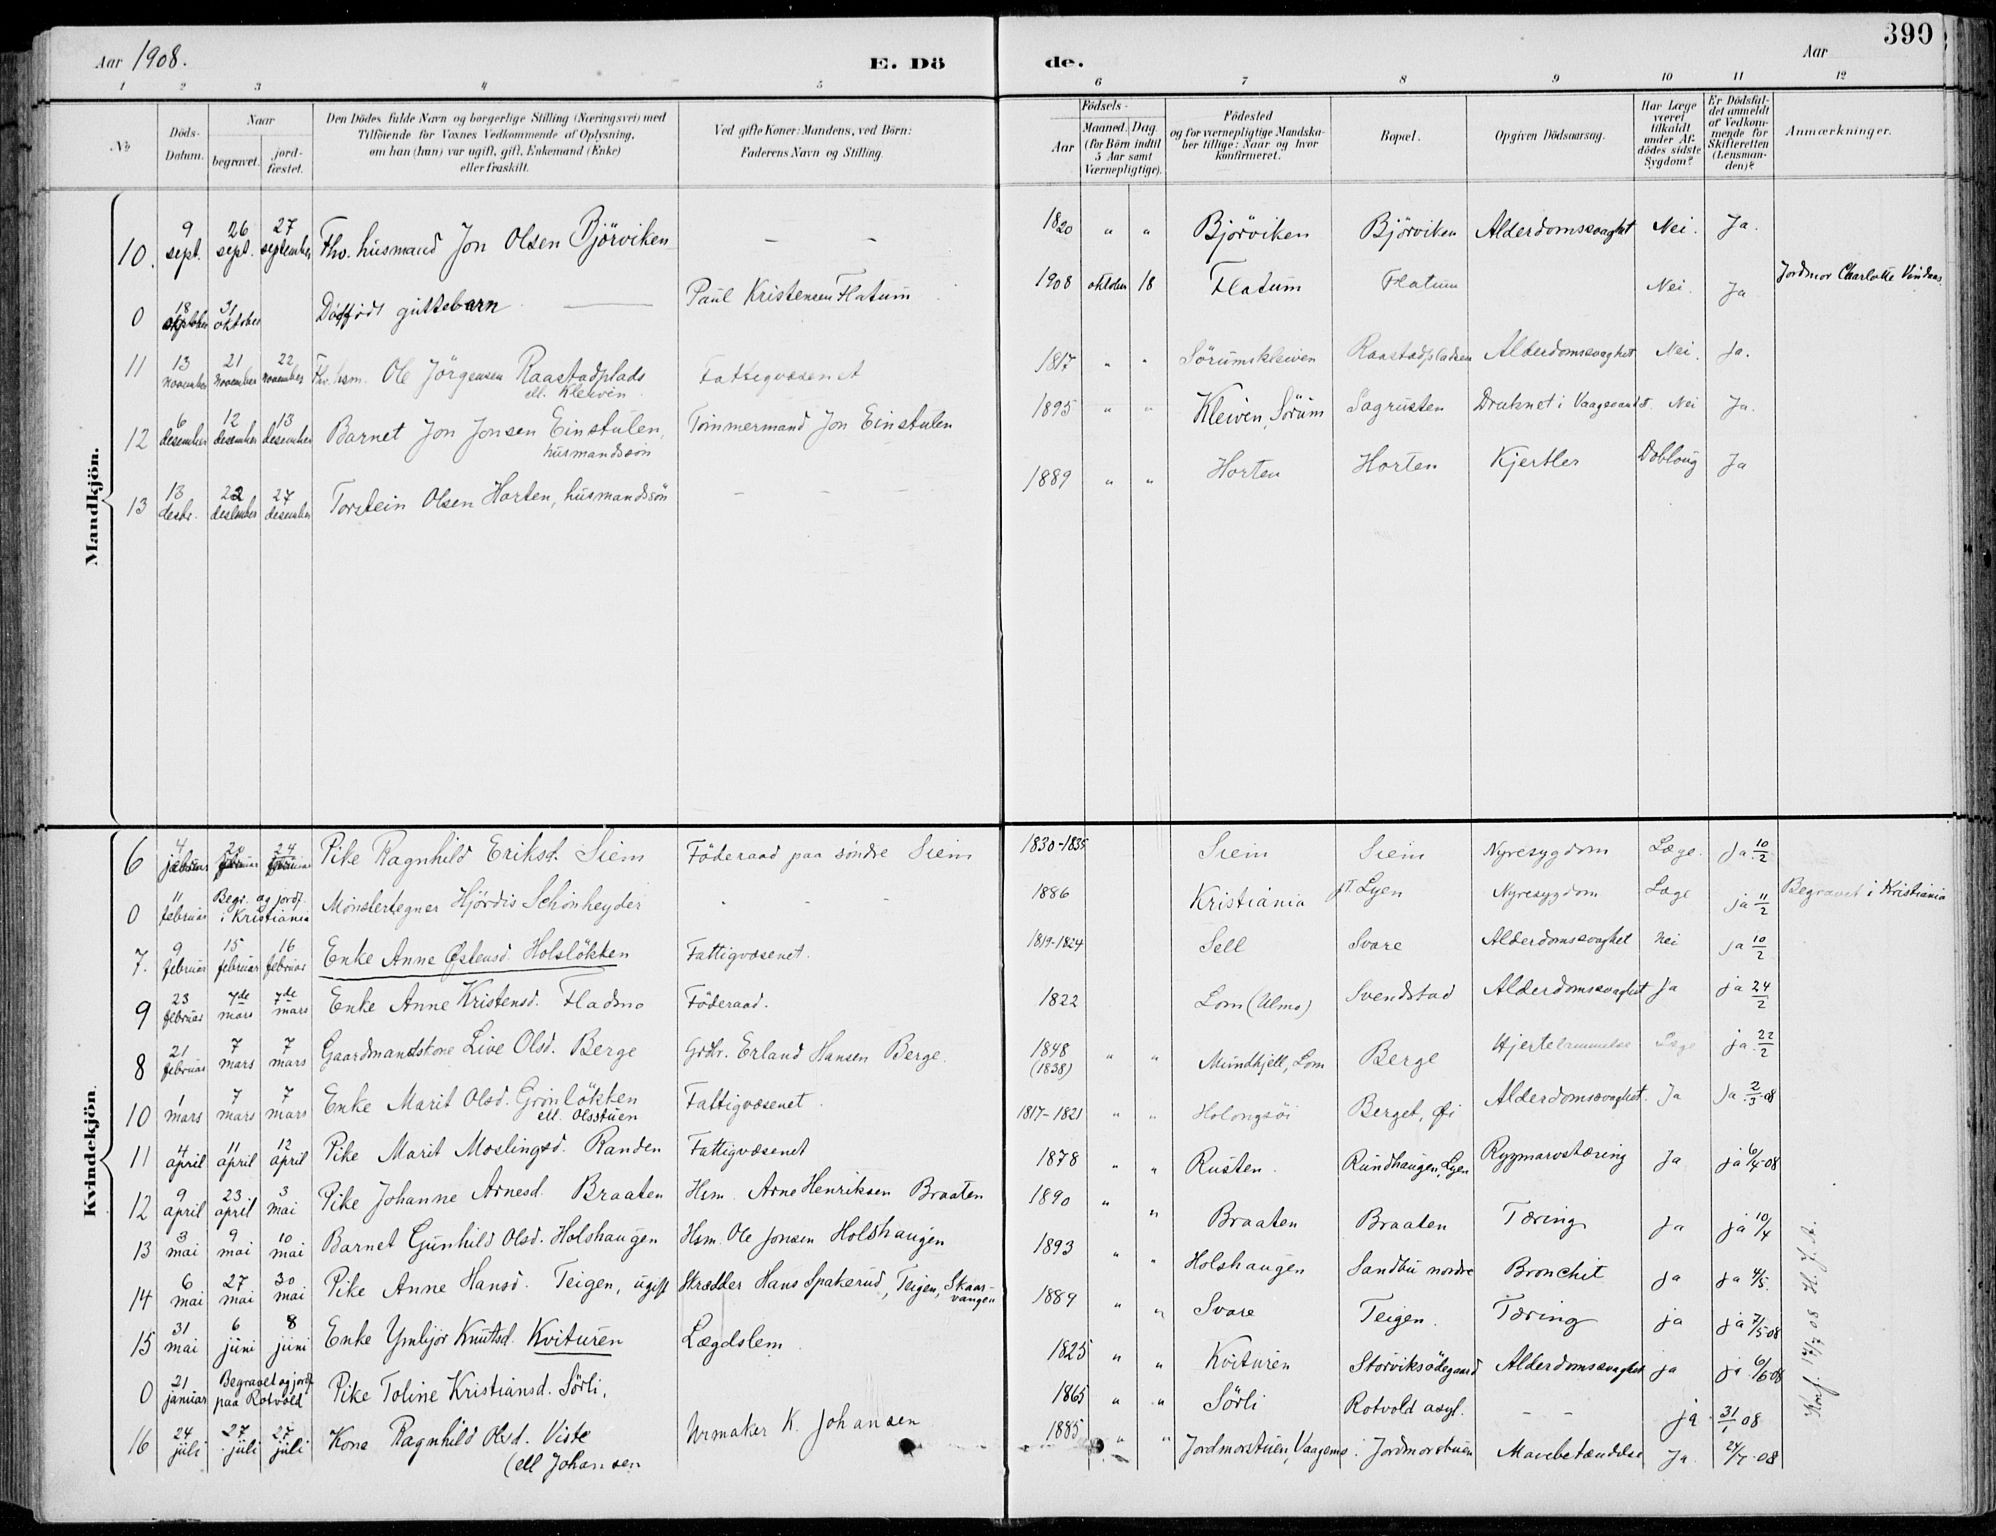 Aar 1908.
E. Dö
de.
Aar
390
1 2 3 4 5 6 7 8 9 10 11 12
No
Döds-Datum.
Naar
begravet.
jord-fæstet.
Den Dödes fulde Navn og borgerlige Stilling (Næringsvei) med
Tilföiende for Voxnes Vedkommende af Oplysning,
om han (hun) var ugift, gift, Enkemand (Enke)
eller fraskilt.
Ved gifte Koner: Mandens, ved Börn:
Faderens Navn og Stilling.
Födsels-
Aar
Maaned. Dag.
(for Börn indtil
5 Aar samt
Værnepligtige).
Födested
og for værnepligtige Mandska-
ber tillige: Naar og hvor
konfirmeret.
Bopæl.
Opgiven Dödsaarsag.
Har Læge
været
tilkaldt
under Af-
dödes sidste
Sygdom?
Er Dödsfal-
det anmeldt
af Vedkom-
mende for
Skifteretten
(Lensman-
den)?
Anmærkninger.
Mandkjön.
10. 9 sept. 26 sept. 27 september Fhv. husmand Jon Olsen Bjørviken - - 1820 " " Bjørviken Bjørviken Alderdomssvaghet Nei. Ja.
0 18 oktober 31 oktober Dødfødt guttebarn Paul Kristensen Flatum 1908 oktober 18 Flatum Flatum Nei. Ja Jordmor Charlotte Vindaas
11 13 november 21 november 22 november Fhv. hsm. Ole Jörgensen Raastadplads Fattigvæsenet 1817 " " Sørumskleiven Raastadpladsen Alderdomssvaghet Nei. Ja.
ell. Kleiven
12 6 desember 12 desember 13 desember Barnet Jon Jonsen Einstulen, Tømmermand Jon Einstulen 1895 " " Kleiven, Sørum Sagrusten Druknet i Vaagevandet. Nei Ja.
husmandssön
13 13 desbr. 22 desember 27 desember Torstein Olsen Horten, husmandssön - - - 1889 " " Horten Horten Kjertler Dobloug Ja
Kvindekjön.
6 4 februar 24 februar Pike Ragnhild Eriksd. Siem Föderaad paa söndre Siem 1830-1835 Siem Siem Nyresygdom Læge. Ja. 10/2
0 11 februar Begr. og jordf. i Kristiania Mönstertegner Hjördis Schönheyder - - - 1886 Kristiania pT. Lyen Nyresygdom Læge ja 11/2 Begravet i Kristiania
7. 9 februar 15 februar 16 februar Enke Anne Østensd. Holsløkken Fattigvæsenet. 1819-1824 Sell Svare Alderdomssvaghet nei ja 10/2
9 23 februar 7de mars 7de mars Enke Anne Kristensd. Fladmo Föderaad. 1822 Lom (Ulmo) Svendstad Alderdomssvaghet ja ja 24/2
8 21 februar 7 mars 7 mars Gaardmandskone Live Olsd. Berge Grdbr. Erland Hansen Berge. 1848 " " Mundhjell, Lom Berge Hjertelammelse Læge ja 22/2
(1838)
10 1 mars 7 mars 7 mars Enke Marit Olsd. Grönløkken Fattigvæsenet. 1817-1821 " " Holongsöi Berget, Øi Alderdomssvaghet. Ja Ja. 2/3 08
ell. Olsstuen
11 4 april 11 april 12 april Pike Marit Moslingsd. Randen Fattigvæsenet 1878 " " Rusten. Rundhaugen, Lyen Rygmarvstæring Ja ja 6/4 08
12 9 april 23 april 3 mai Pike Johanne Arnesd. Braaten Hsm. Arne Henriksen Braaten 1890 " " Braaten Braaten Tæring ja ja 10/4
13 3 mai 9 mai 10 mai Barnet Gunhild Olsd. Holshaugen Hsm. Ole Jonsen Holshaugen 1893 " " Holshaugen Sandbu nordre Bronchit ja ja 4/5.
14 6 mai 27 mai 30 mai Pike Anne Hansd. Teigen, ugift Skrædder Hans Spakerud, Teigen, Skaar-vangen 1889 " " Svare Teigen. Tæring ja ja 7/5 08
15 31 mai 6 juni 8 juni Enke Ymbjör Knutsd. Kvituren Lægdslem 1825 " " Kvituren Storviksödegaard Alderdomssvaghet ja ja 6/6 08
0 21 januar Begravet og jordf. paa Rotvold Pike Toline Kristiansd. Sörli. 1865 " " Sörli Rotvold asyl. - - ja 31/1 08
16 24 juli 27 juli 27 juli Kone Ragnhild Olsd. Viste Urmaker K. Johansen 1885 " " Jordmorstuen, Vaagemo. Jordmorstuen Mavebetændelse Ja. 24/7 08
(ell Johansen
Konf. 17/7 08 H. J. A.